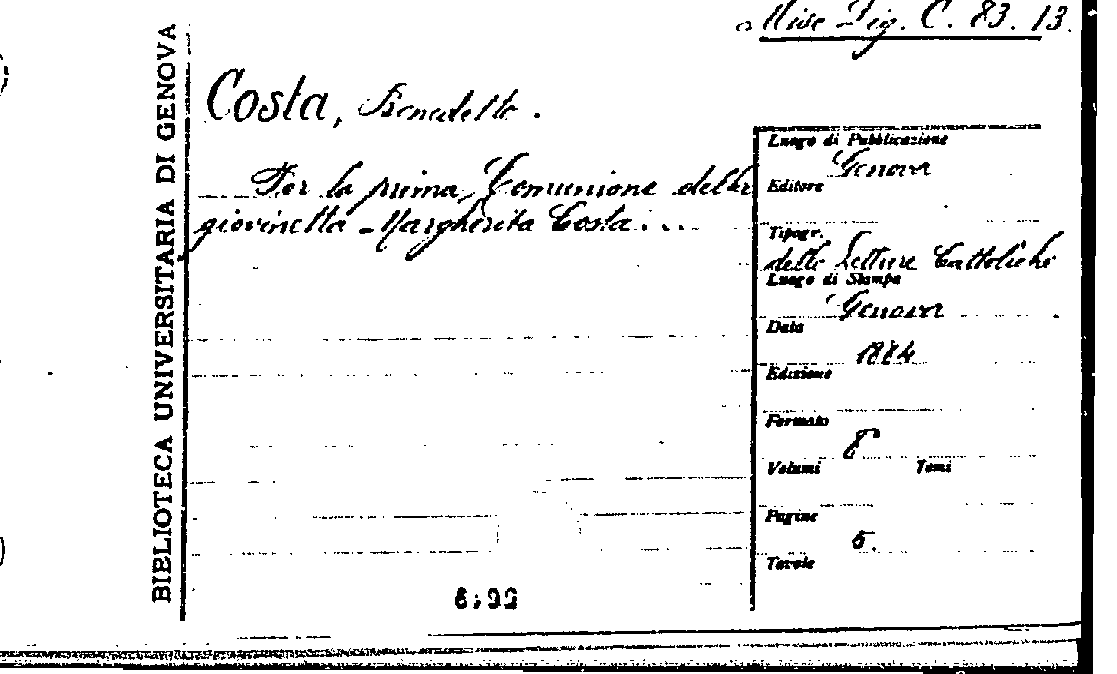 Misc Lig. C. 83. 13.
BIBLIOTECA UNIVERSITARIA DI GENOVA
Costa, Benedetto.
Per la prima Comunione della
giovinetta Margherita Costa...
Luogo di Pubblicazione
Genova
Editore
Tipogr.
delle Letture Cattoliche
Luogo di Stampa
Genova
Data
1884
Edizione
Formato
8°
Volumi Tomi
Pagine
5.
Tavole